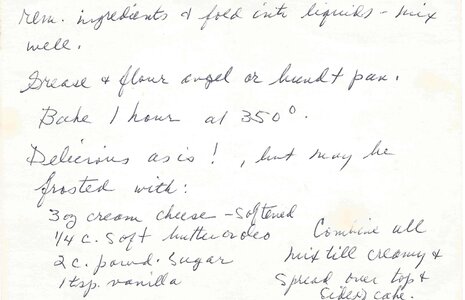 rem. ingredients & fold into liquids - mix
well.
Grease & flour angel or bundt pan.
Bake 1 hour at 350°.
Delicious as is! , but may be
frosted with:
3 oz cream cheese - softened
1/4 c. soft butter
2 c. powd. sugar
1 tsp. vanilla
Combine all
mix till creamy &
spread over top &
sides cake.